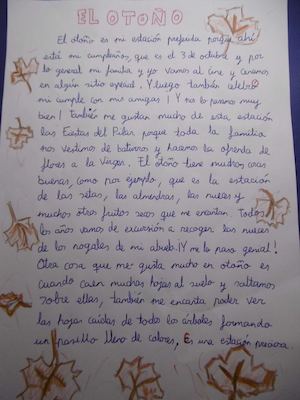 EL OTOÑO
El otoño es mi estación preferida porque ahí
está mi cumpleaños, que es el 3 de octubre y por
lo general mi familia y yo vamos al cine y cenamos
en algún sitio especial. Y luego también celebro
mi cumple con mis amigas ¡Y no lo pasamos muy
bien! También me gustan mucho de esta estación
las Fiestas del Pilar porque toda la familia
nos vestimos de baturros y hacemos la ofrenda de
flores a la Virgen. El otoño tiene muchas cosas
buenas, como por ejemplo, que es la estación
de las setas, las almendras, las nueces y
muchos otros frutos secos que me encantan. Todos
los años vamos de excursión a recoger las nueces
de los nogales de mi abuelo. ¡Y me lo paso genial!
Otra cosa que me gusta mucho en otoño es
cuando caen muchas hojas al suelo y saltamos
sobre ellas, también me encanta poder ver
las hojas caídas de todos los árboles formando
un pasillo lleno de colores, Es una estación preciosa.